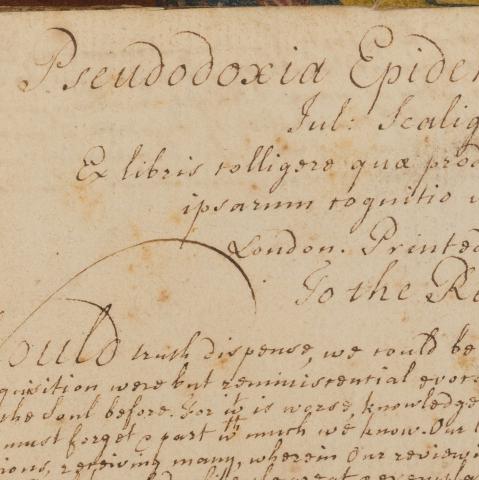 Pseudodoxia Epide
Jul: Scalig
Ex libris colligere quæ prod
ipsarum cognitio
London. Printed
To the R
Would truth dispense, we could be
quisition were but reminiscential evoc
the Soul before. For wt is worse, knowledge
must forget & part wth much we know. Our
ions, receiving many, wherein our reviewi